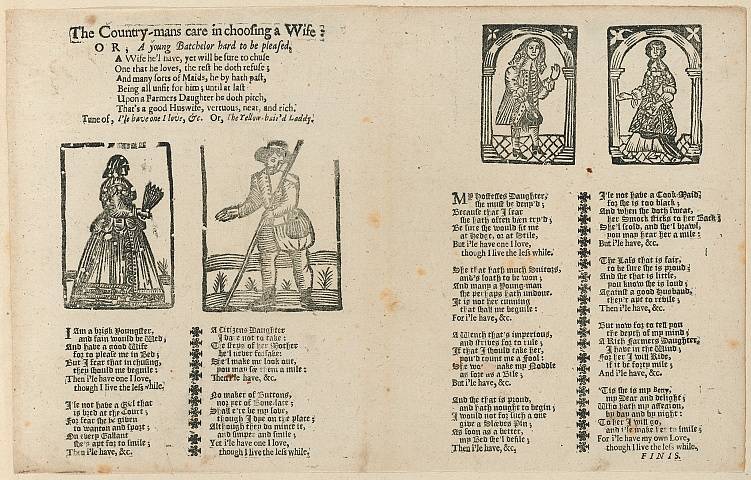 The Country-mans care in choosing a Wife:
OR, A young Batchelor hard to be pleased.
A Wife he'l have, yet will be sure to chuse
One that he loves, the rest he doth refuse;
And many sorts of Maids, he by hath past,
Being all unfit for him; until at last
Upon a Farmers Daughter he doth pitch,
That's a good Huswife, vertuous, neat, and rich.
Tune of, I'le have one I love, &c. Or, The Yellow-hair'd Laddy.
I Am a brisk Youngster,
and fain would be Wed,
And have a good Wife
for to please me in Bed;
But I fear that in chusing,
they should me beguile:
Then i'le have one I love,
though I live the less while.
I'le not have a Girl that
is bred at the Court;
For fear she's given
to wanton and sport;
On every Gallant
she's apt for to smile;
Then i'le have, &c.
A Citizens Daughter
I dare not to take:
The steps of her Mother
he'l never forsake:
She'l make me look out,
you may see them a mile:
Then i'le have, &c.
No maker of Buttons,
nor yet of Bone-lace;
Shall e're be my love,
though I dye on the place;
Although they do mince it,
and simper and smile;
Yet i'le have one I love,
though I live the less while.
My Hostesses Daughter,
she must be deny'd;
Because that I fear
she hath often been try'd;
Be sure she would fit me
at Hedge, or at Stile,
But i'le have one I love,
though I live the less while.
She that hath much Suitors,
and's loath to be won;
And many a Young-man
she perhaps hath undone.
It is not her cunning
that shall me beguile:
For i'le have, &c.
A Wench that's imperious,
and strives for to rule;
If that I should take her,
you'd count me a fool:
She make my Noddle
as soft as a Bile;
But i'le have, &c.
And she that is proud,
and hath nought to begin;
I would not for such a one
give a Sleeves Pin;
As soon as a better,
my Bed she'l defile;
Then i'le have, &c.
I'le not have a Cook-Maid,
for she is too black;
And when she doth sweat,
her Smock sticks to her Back;
She'l scold, and she'l brawl,
you may hear her a mile:
But i'le have, &c.
The Lass that is fair,
to be sure she is proud;
And she that is little,
you know she is loud;
Against a good Husband,
they'r apt to revile;
Then i'le have, &c.
But now for to tell you
the depth of my mind;
A Rich Farmers Daughter,
I have in the Wind;
For her I will Ride,
if it be forty mile;
And i'le have, &c.
'Tis she is my
my Dear and delight;
Who hath my affection,
by day and by night:
To her I will go,
and i'le make her to smile;
For i'le have my own Love,
though I live the less while.
FINIS.